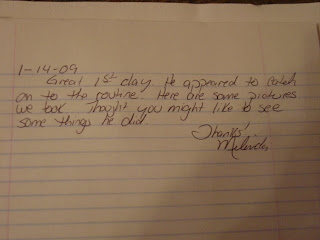 1-14-09
Great 1st day. He appeared to catch
on to the routine. Here are some pictures
we took. Thought you might like to see
some things he did.
Thanks!
Melinda